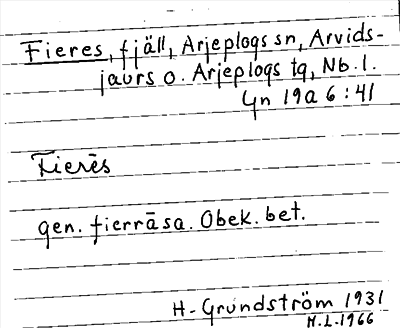 Fieres, fjäll, Arjeplogs sn, Arvids-
jaurs o. Arjeplogs tg, Nb. l.
Gn 19a 6:41
Fierēs
gen. fierrāsa. Obek. bet.
H. Grundström 1931
H.L. 1966